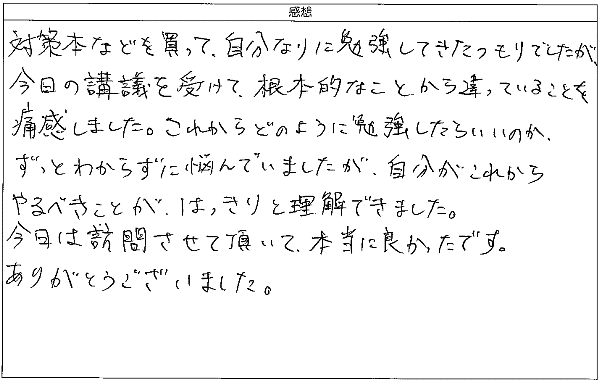 感想
対策本などを買って、自分なりに勉強してきたつもりでしたが、
今日の講議を受けて、根本的なことから違っていることを
痛感しました。これからどのように勉強したらいいのか、
ずっとわからずに悩んでいましたが、自分がこれから
やるべきことが、はっきりと理解できました。
今日は訪問させて頂いて、本当に良かったです。
ありがとうございました。